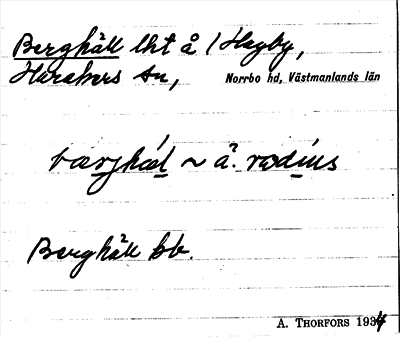 Berghäll lht å / Hagby,
Harakers sn, Norrbo hd, Västmanlands län
bærjhæl ~ å. rædius
Berghäll bb.
A. THORFORS 1934